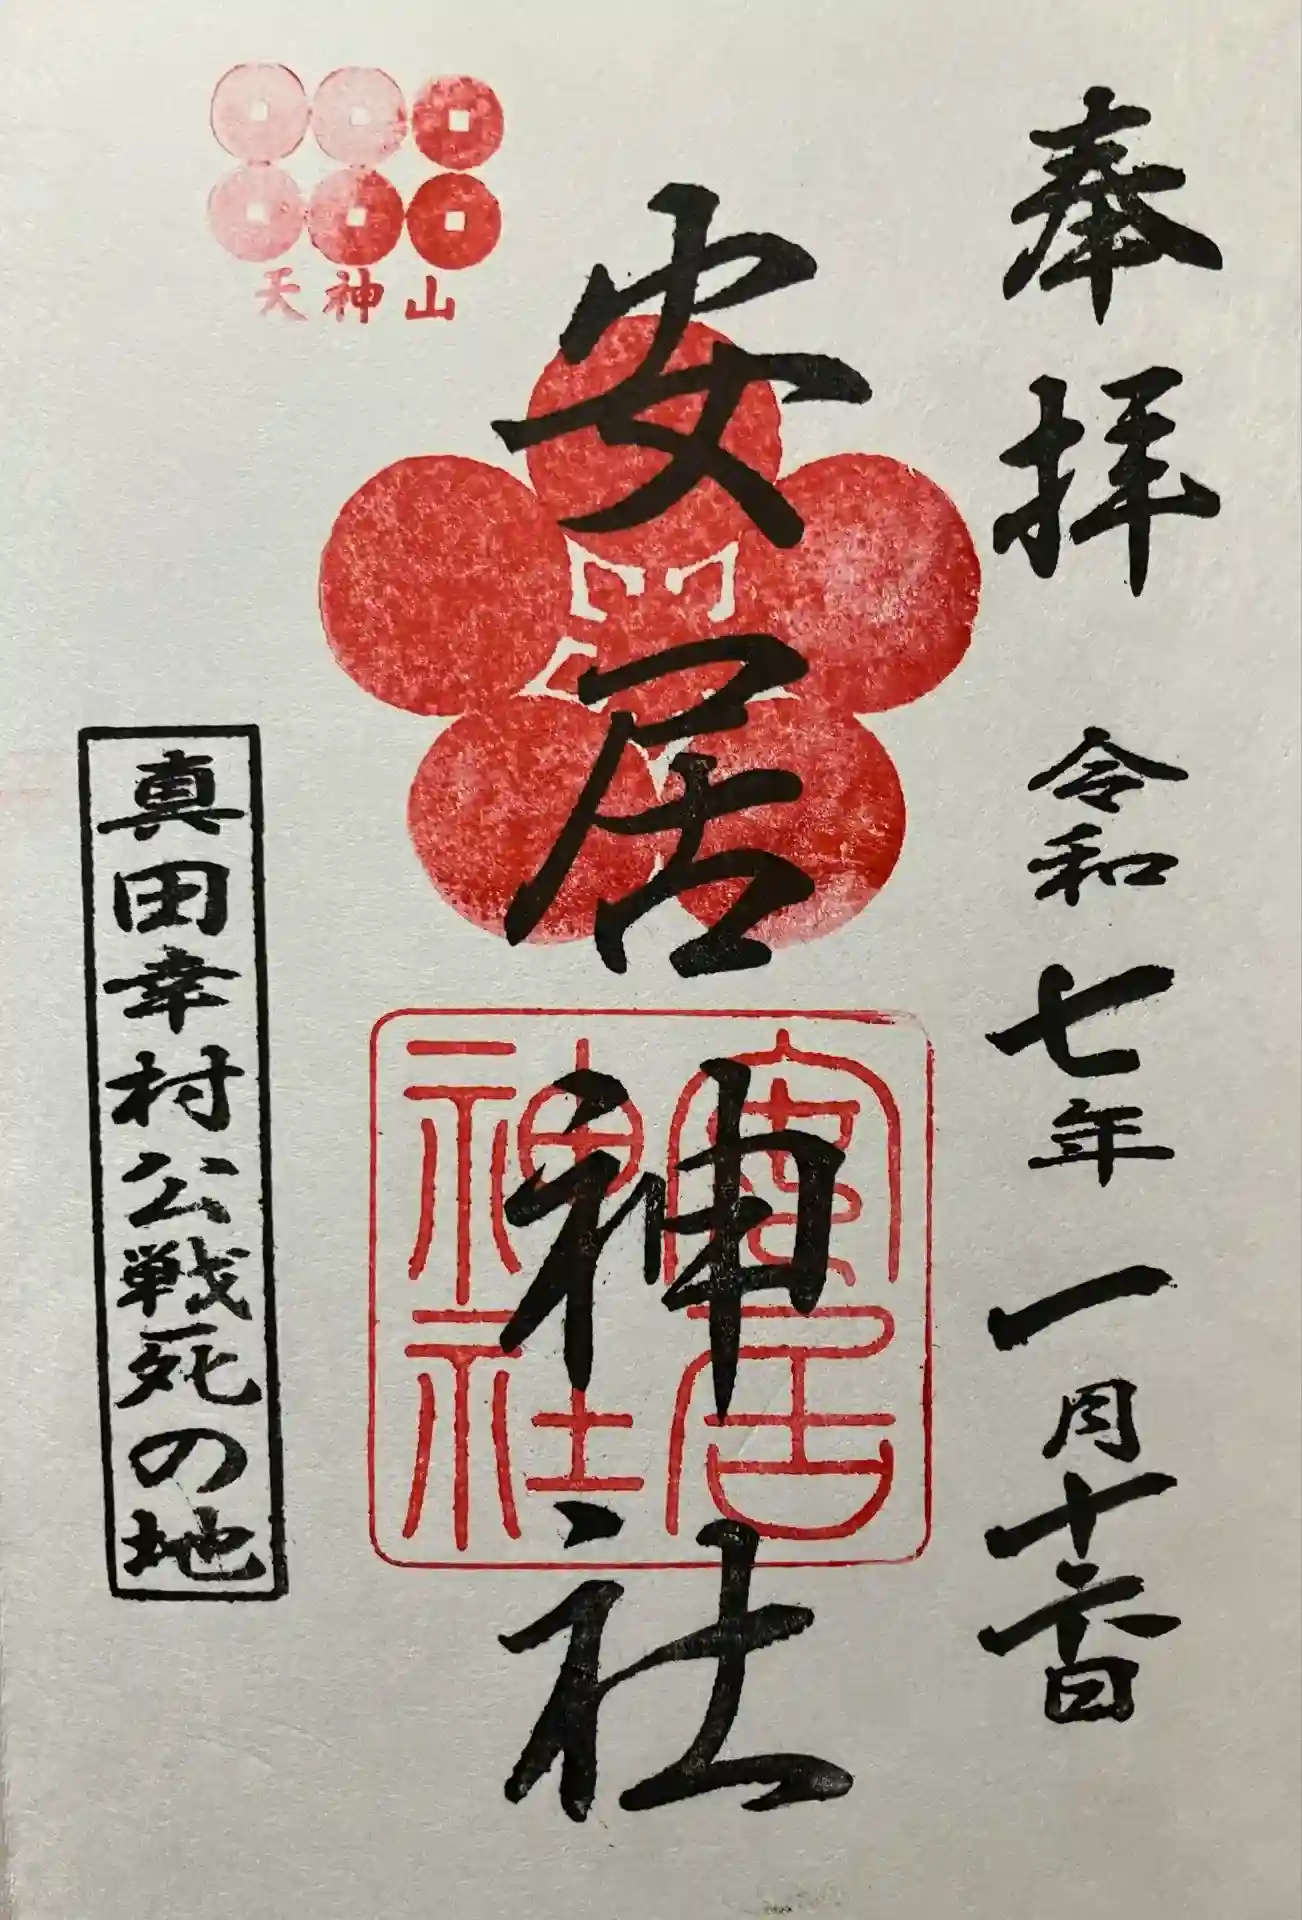 奉拝 令和七年一月十六日
安居神社
安居神社
天神山
真田幸村公戦死の地